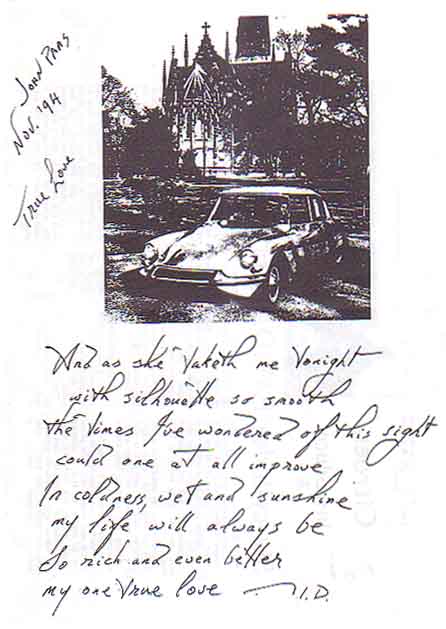 John Paas
Nov. '94
True Love
And as she taketh me tonight
with silhouette so smooth
the times I've wondered of this sight
could one at all improve
In coldness, wet and sunshine
my life will always be
So rich and even better
my one true love — I.D.